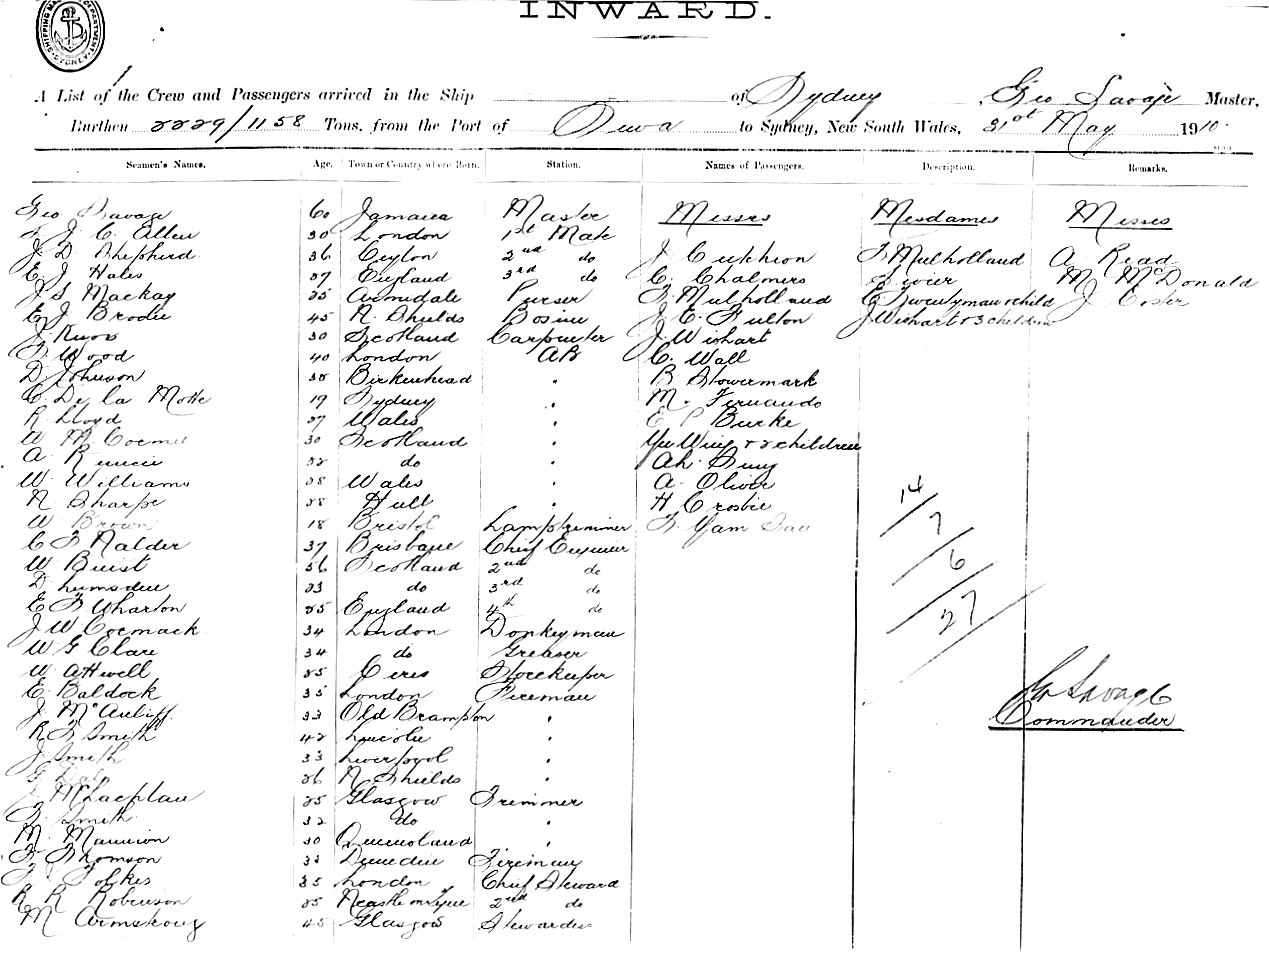 SHIPPING MA DEPARTMENT SYDNEY
INWARD.
A List of the Crew and Passengers arrived in the Ship of Sydney, Geo Savage Master,
Burthen 2229/1158 Tons, from the Port of Suva to Sydney, New South Wales, 31st May 1910.
Seamen's Names. Age. Town or Country where Born. Station. Names of Passengers. Description. Remarks.
Geo Savage 60 Jamaica Master Messrs Mesdames Misses
J. C. Allen 30 London 1st Mate
J D Shepherd 36 Ceylon 2nd do J Cutchion F Mulholland A Read
E. J Hales 27 England 3rd do C. Chalmers M McDonald
J S Mackay 25 Armidale Purser F. Mulholland E Twentyman & child J Coster
E J Brodie 45 N. Shields Bosun J. E. Fulton J Wishart & 3 children
J. Knox 30 Scotland Carpenter J Wishart
F Wood 40 London AB C. Wall
D Johnson Birkenhead B Stowermark
C. De la Motte 19 Sydney M. Fernando
R Lloyd 27 Wales E P Burke
W M 30 Scotland Yee Wing & 2 children
A Runcie 22 do Ah
W. Williams 28 Wales A. Oliver
N Sharpe 28 Hull H Crosbie
W Brown 18 Bristol Lamptrimmer F. Yam
C F Nalder 37 Brisbane Chief Engineer
W Buist 56 Scotland 2nd do
D Lumsden 23 do 3rd do
E F Wharton 25 England 4th do
J W Cormack 34 London Donkeyman
W G Clare 34 do Greaser
W Attwell 25 Ceres Storekeeper
E Baldock 35 London Fireman
J McAuliff 33 Old Brampton
R F Smith 42 Lincoln
J Smith 33 Liverpool
G Daly 26 N Shields
J McLachlan 25 Glasgow Trimmer
F. Smith 32 do
M. Mannion 30 Queensland
F Thomson 33 Dunedin Fireman
Folkes 35 London Chief Steward
R R Robinson 25 Ncastle on Tyne 2nd do
M Armstrong 45 Glasgow Stewardess
14
7
6
27
Geo Savage
Commander